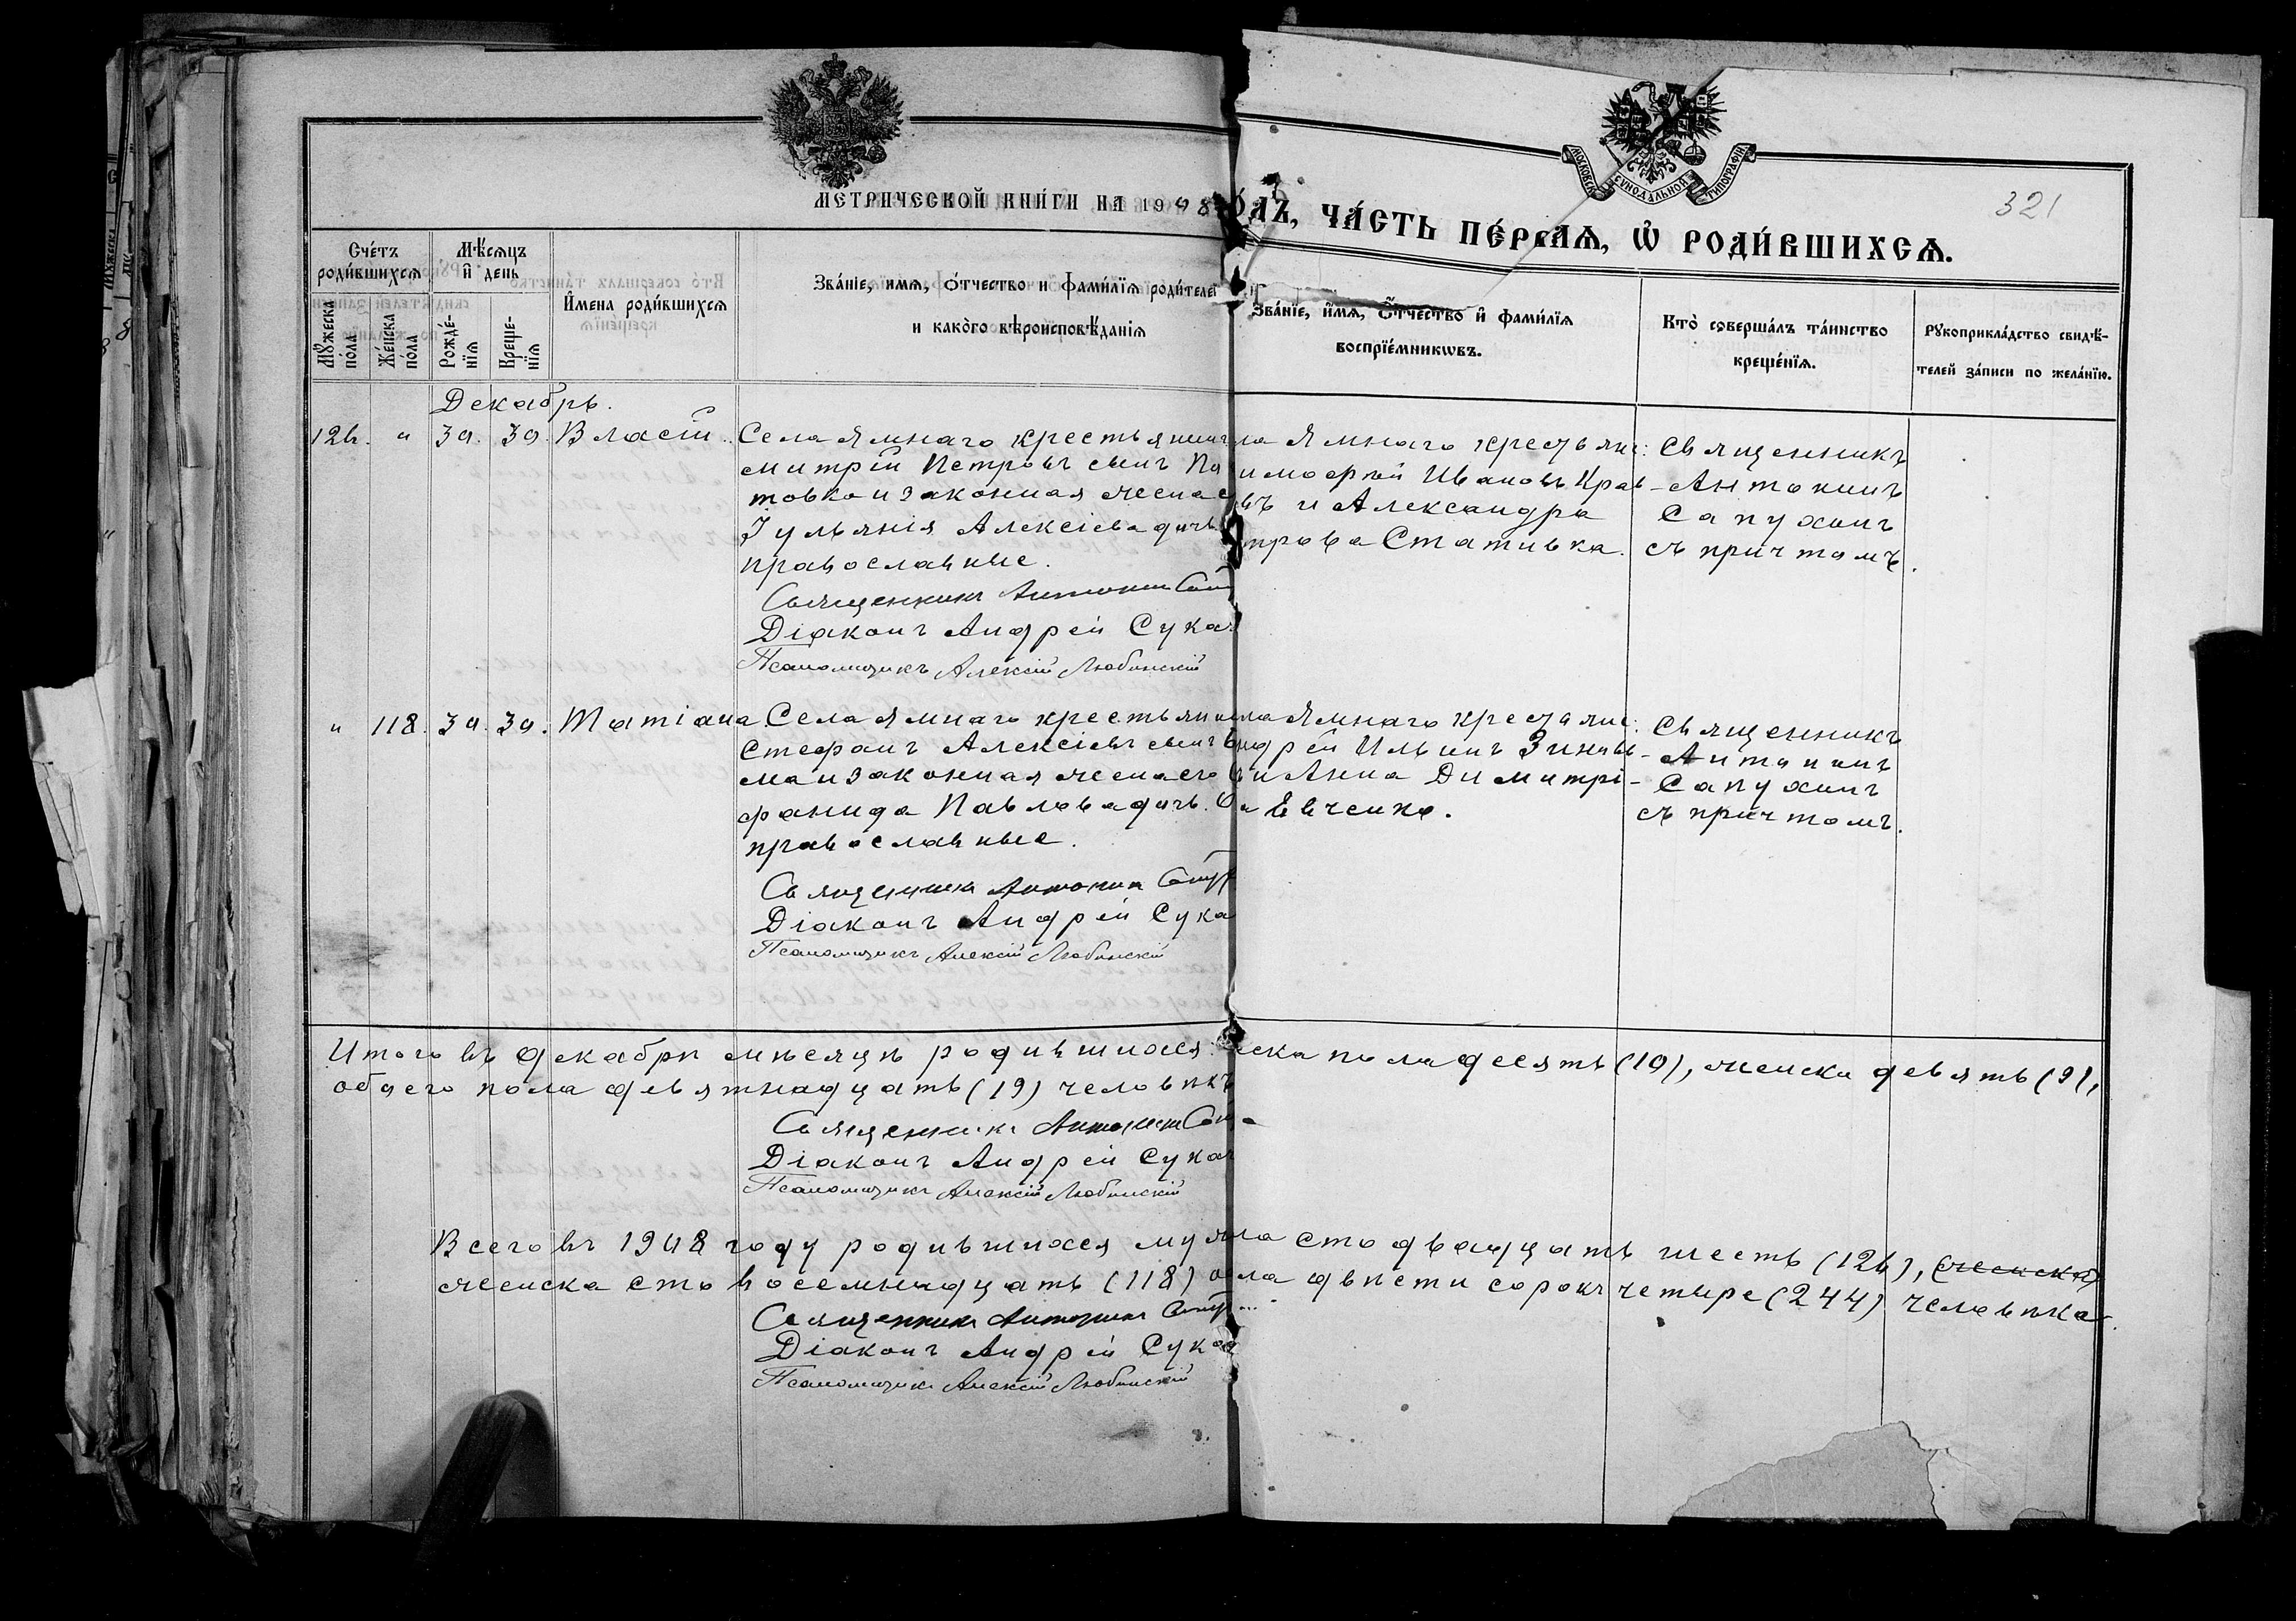 МЕТРИЧЕСКОЙ КНИ́ГИ НА 1908 ГО́ДЪ, ЧА́СТЬ ПЕ́РВАѦ, Ѽ РОДИ́ВШИХСѦ.
МОСКОВСК. СѴНОДАЛЬНОЙ ТИПОГРАФІИ
321
Сче́тъ роди́вшихсѧ
Мѣ́сѧцъ и҆ день
Мꙋ́жеска по́ла
Же́нска по́ла
Рожде́нїѧ
Креще́нїѧ
И҆мена роди́вшихсѧ
Зва́нїе, имѧ, ѻ҆́тчество и фами́лїѧ роди́телей
и како́го вѣроисповѣ́данїѧ
Зва́нїе, и҆́мѧ, ѻ҆́тчество и҆ фами́лїѧ
воспрїе́мникѡвъ.
Кто̀ соверша́лъ та́инство
креще́нїѧ.
Рꙋкоприкла́дство свидѣ́-
телей за́писи по жела́нїю.
Декабрь.
126. " 30. 30. Власій.
Села Ямнаго крестьянинъ
митрій Петровъ сынъ
товка и законная жена е
Іульянія Алексіева дочь
православные.
Священникъ Антонин
Діаконъ Андрей Сука
Псаломщикъ Алексій Любинскій
ла Ямнаго крестьян:
имофей Ивановъ Крав-
въ и Александра
трова Стативка.
Священникъ
Антонинъ
Сапухинъ
съ причтомъ.
" 118. 30. 30. Татіана.
Села Ямнаго крестьянин
Стефанъ Алексіевъ сынъ
ма и законная жена его
фанида Павлова дочь.
православные.
Священникъ Антонин
Діаконъ Андрей Сука
Псаломщикъ Алексій Любинскій
ла Ямнаго крестьян:
ндрей Ильинъ Зиновь-
и Анна Димитрі-
а Евченко.
Священникъ
Антонинъ
Сапухинъ
съ причтомъ.
Итого въ декабрѣ мѣсяцѣ родившихся: ска пола десять (10), женска девять (9),
обоего пола девятнадцать (19) человѣкъ
Священникъ Антонин
Діаконъ Андрей Сукач
Псаломщикъ Алексій Любинскій
Всего въ 1908 году родившихся муж ла сто двадцать шесть (126), (женска)
женска сто восемнадцать (118) о ла двѣсти сорокъ четыре (244) человѣка.
Священникъ Антонинъ
Діаконъ Андрей Сукач
Псаломщикъ Алексій Любинскій